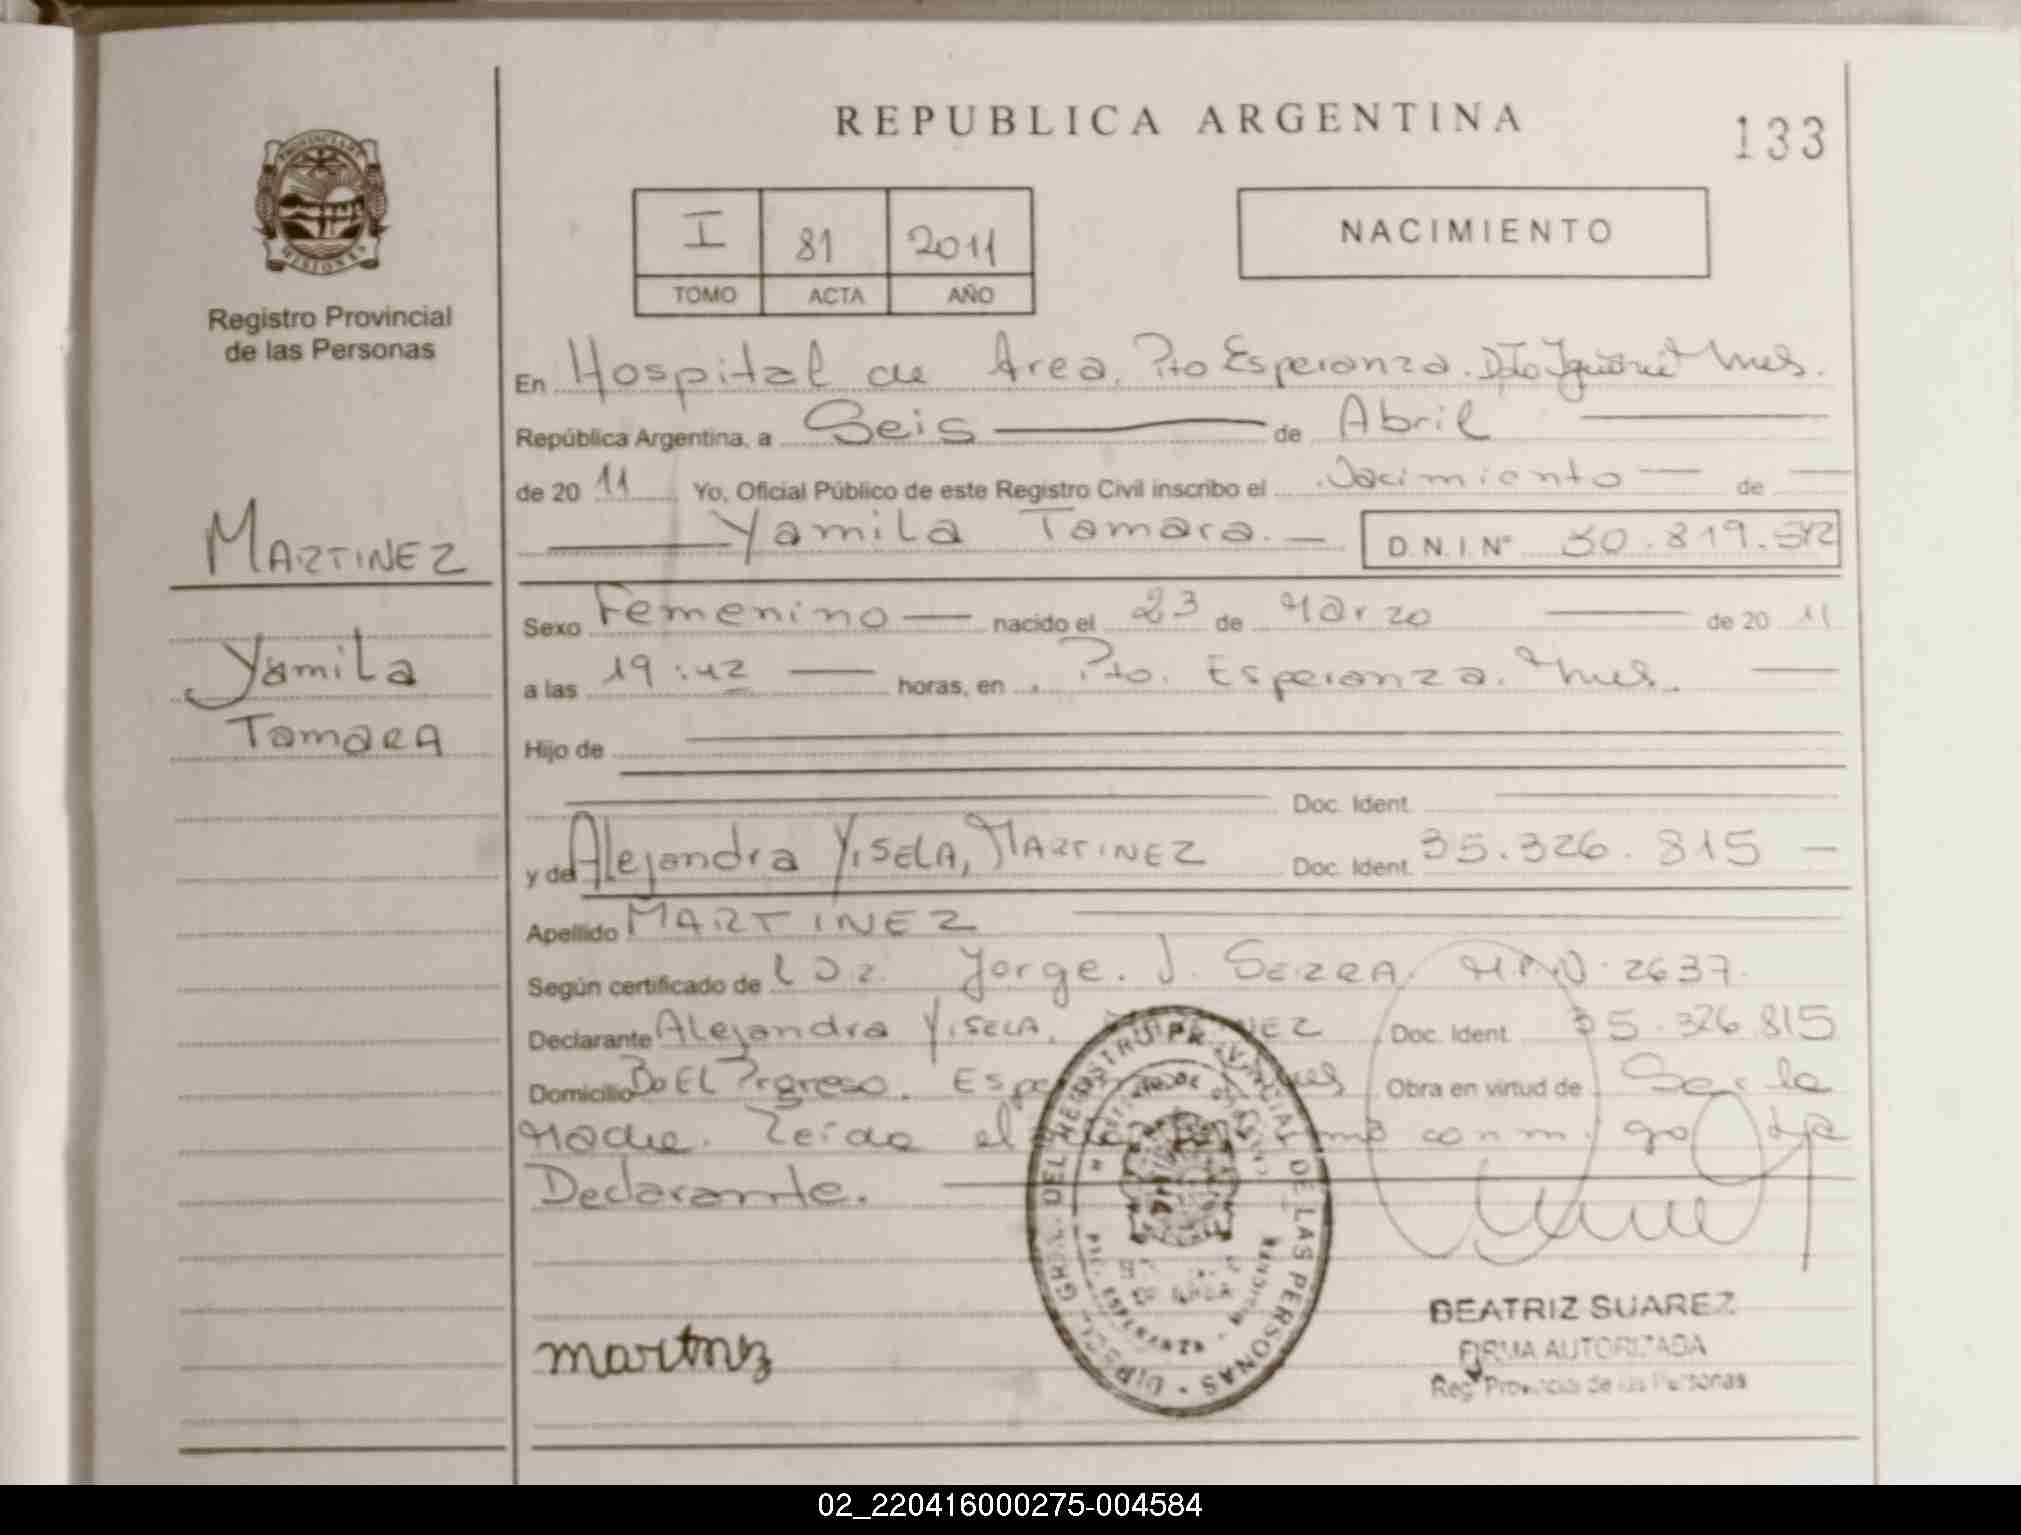 REPUBLICA ARGENTINA
133
PROVINCIA DE
MISIONES
Registro Provincial
de las Personas
I 81 2011
TOMO ACTA AÑO
NACIMIENTO
En Hospital de Area, Pto Esperanza. Dto Iguazú Mnes.
República Argentina, a Seis de Abril
de 2011 Yo, Oficial Público de este Registro Civil inscribo el Nacimiento de
Yamila Tamara. D.N.I. Nº 50.819.512
MARTINEZ
Yamila
Tamara
Sexo Femenino nacido el 23 de Marzo de 2011
a las 19:42 horas, en Pto. Esperanza. Mnes.
Hijo de
Doc. Ident.
y de Alejandra YISELA, MARTINEZ Doc. Ident. 35.326.815
Apellido MARTINEZ
Según certificado de Jorge. J. SERRA. M.P.Nº 2637.
Declarante Alejandra YISELA. Doc. Ident 35.326.815
Domicilio Bo EL Prgreso. Obra en virtud de Ser la
Madre. Leída el conmigo La
Declarante.
DIRECC. GRAL. DEL REGISTRO PROVINCIAL DE LAS PERSONAS
PTO. ESPERANZA - MISIONES
martnez
BEATRIZ SUAREZ
FIRMA AUTORIZADA
Reg. Provincial de las Personas
02_220416000275-004584